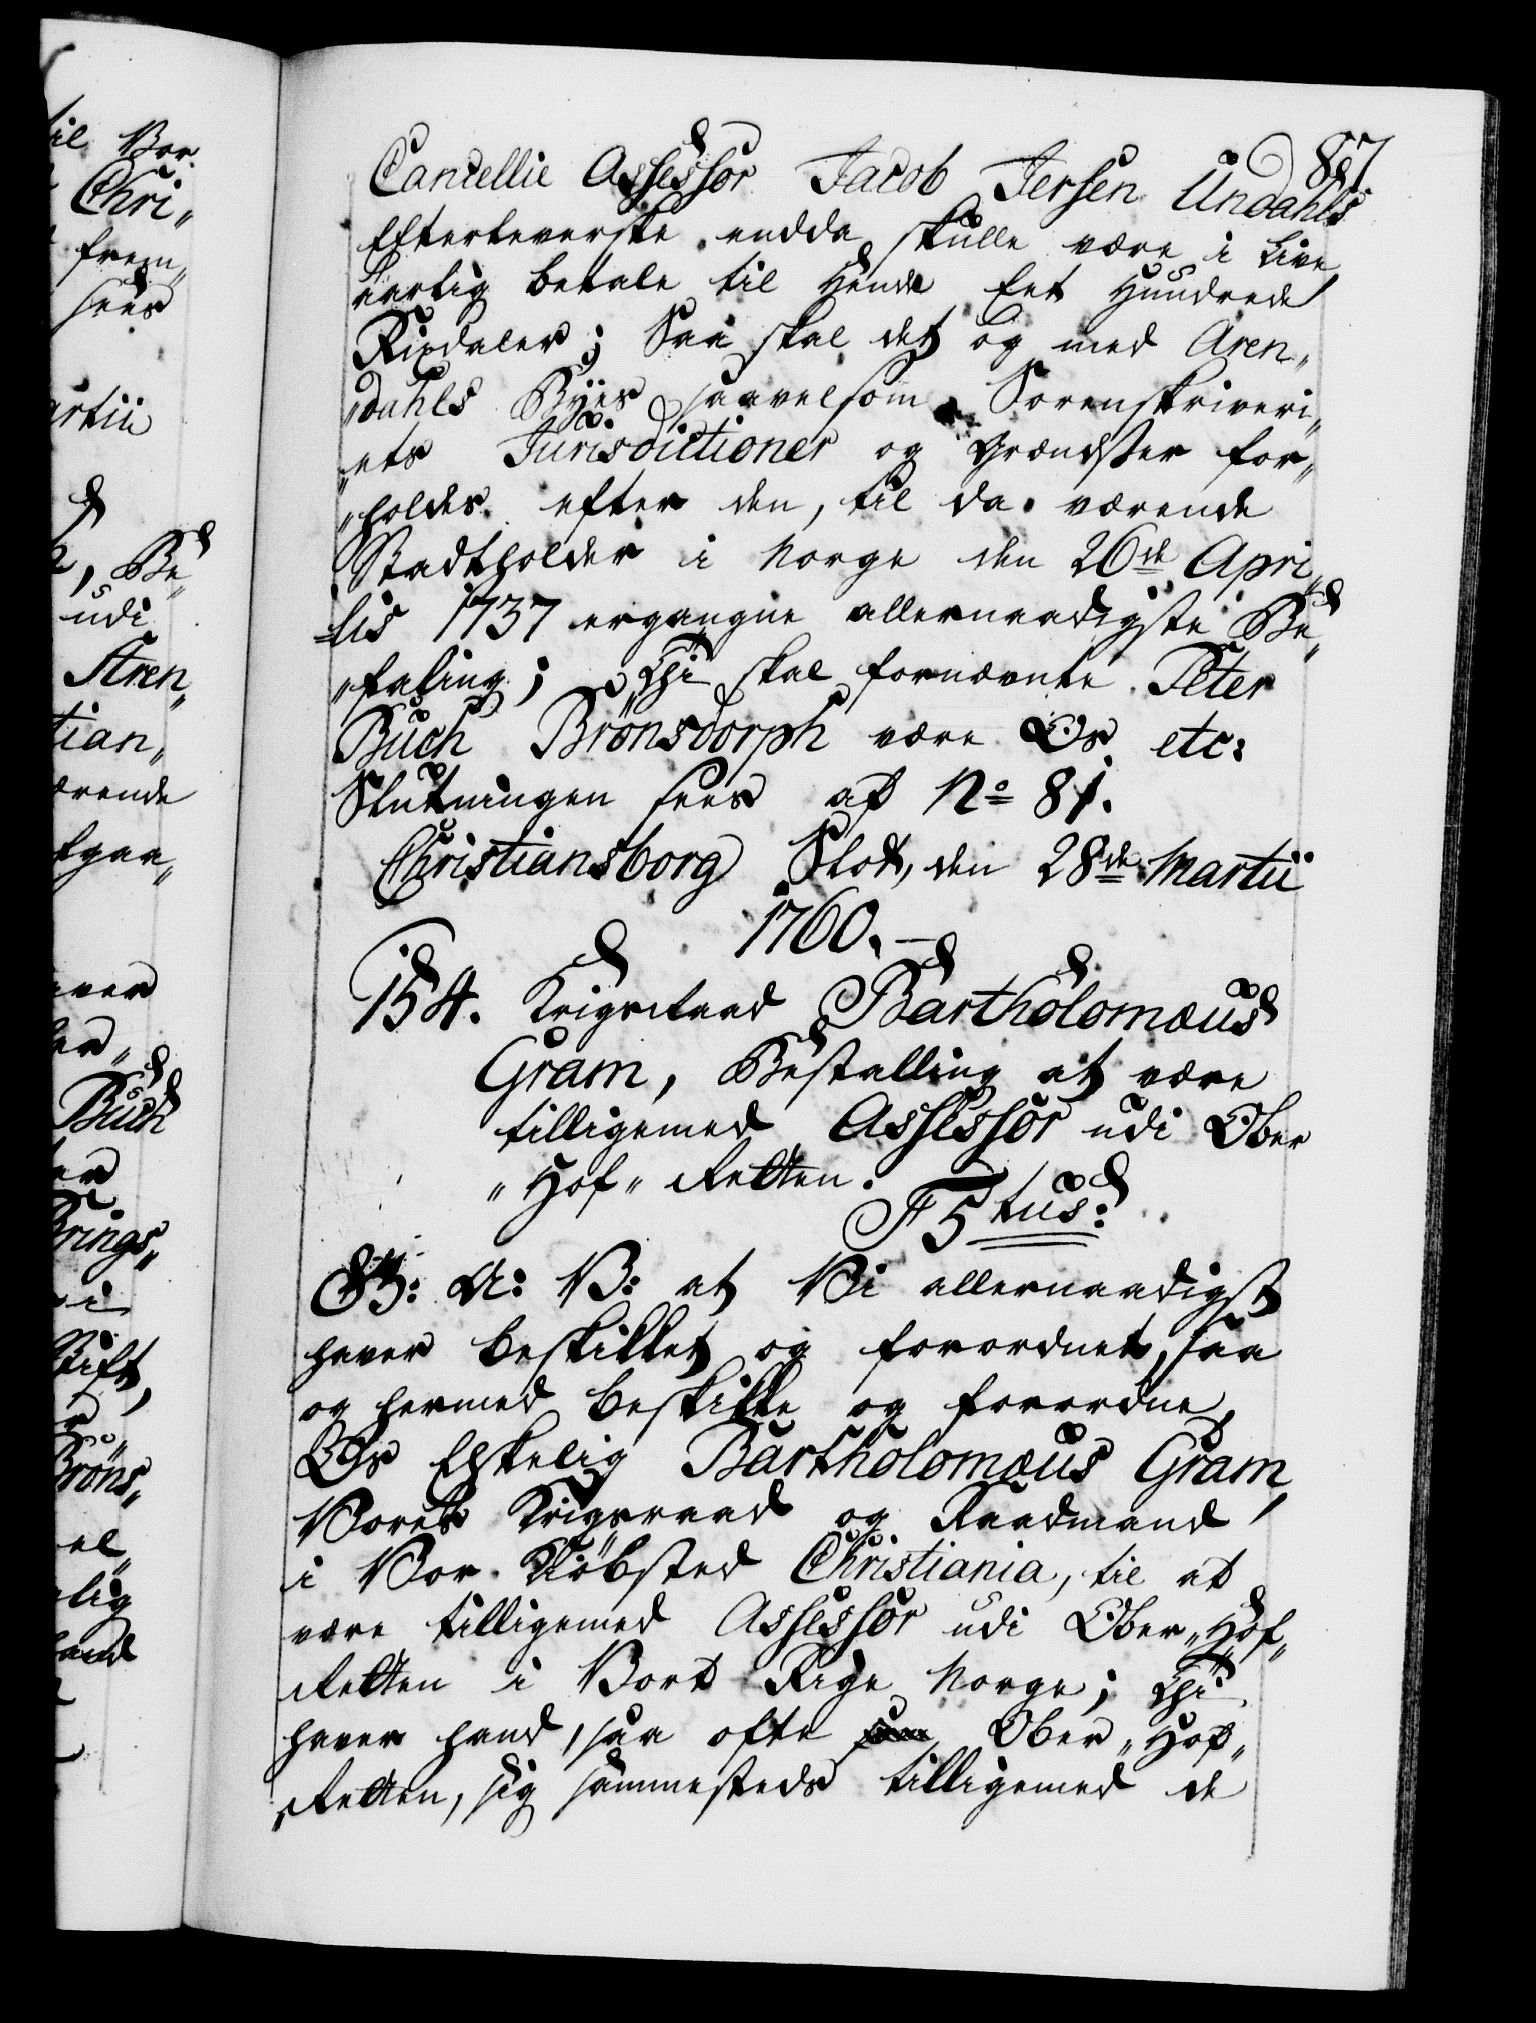 857
Cancellie Assessor Jacob Jersen Undahls
Efterleverske endda skulle være i Live
aarlig betale til Hende Eet Hundrede
Rixdaler; Saa skal det og med Aren„
„dahls Byes saavelsom Sorenskriveri„
„ets Jurisdictioner og Grændser for„
„holdes efter den, til da værende
Stadtholder i Norge den 26de Apri„
„lis 1737 ergangne allernaadigste Be„
„faling; Thi skal fornævnte Peter
Buch Brönsdorph være Os etc:
Slutningen sees af No 81.
Christiansborg Slot, den 28de Martii
1760.
154. Krigsraad Bartholomæus
Gram, Bestalling at være
tilligemed Assessor udi Ober
„Hof„ Retten.
F5tus:
G: A: V: at Vi allernaadigst
haver beskikket og forordnet, saa
og hermed beskikke og forordne
Os Elskelig Bartholomæus Gram,
Vores Krigsraad og Raadmand
i Vor Kiöbsted Christiania, til at
være tilligemed Assessor udi Ober„Hof„
Retten i Vort Rige Norge; Thi
haver hand, saa ofte Ober„Hof„
Retten, sig sammesteds tilligemed de
til Vor
Chri„
frem„
sees
artii
Be„
udi
Aren„
tian„
ærende
tgaa„
Buch
Brings„
i
Stift,
Bröns„
el„
lig